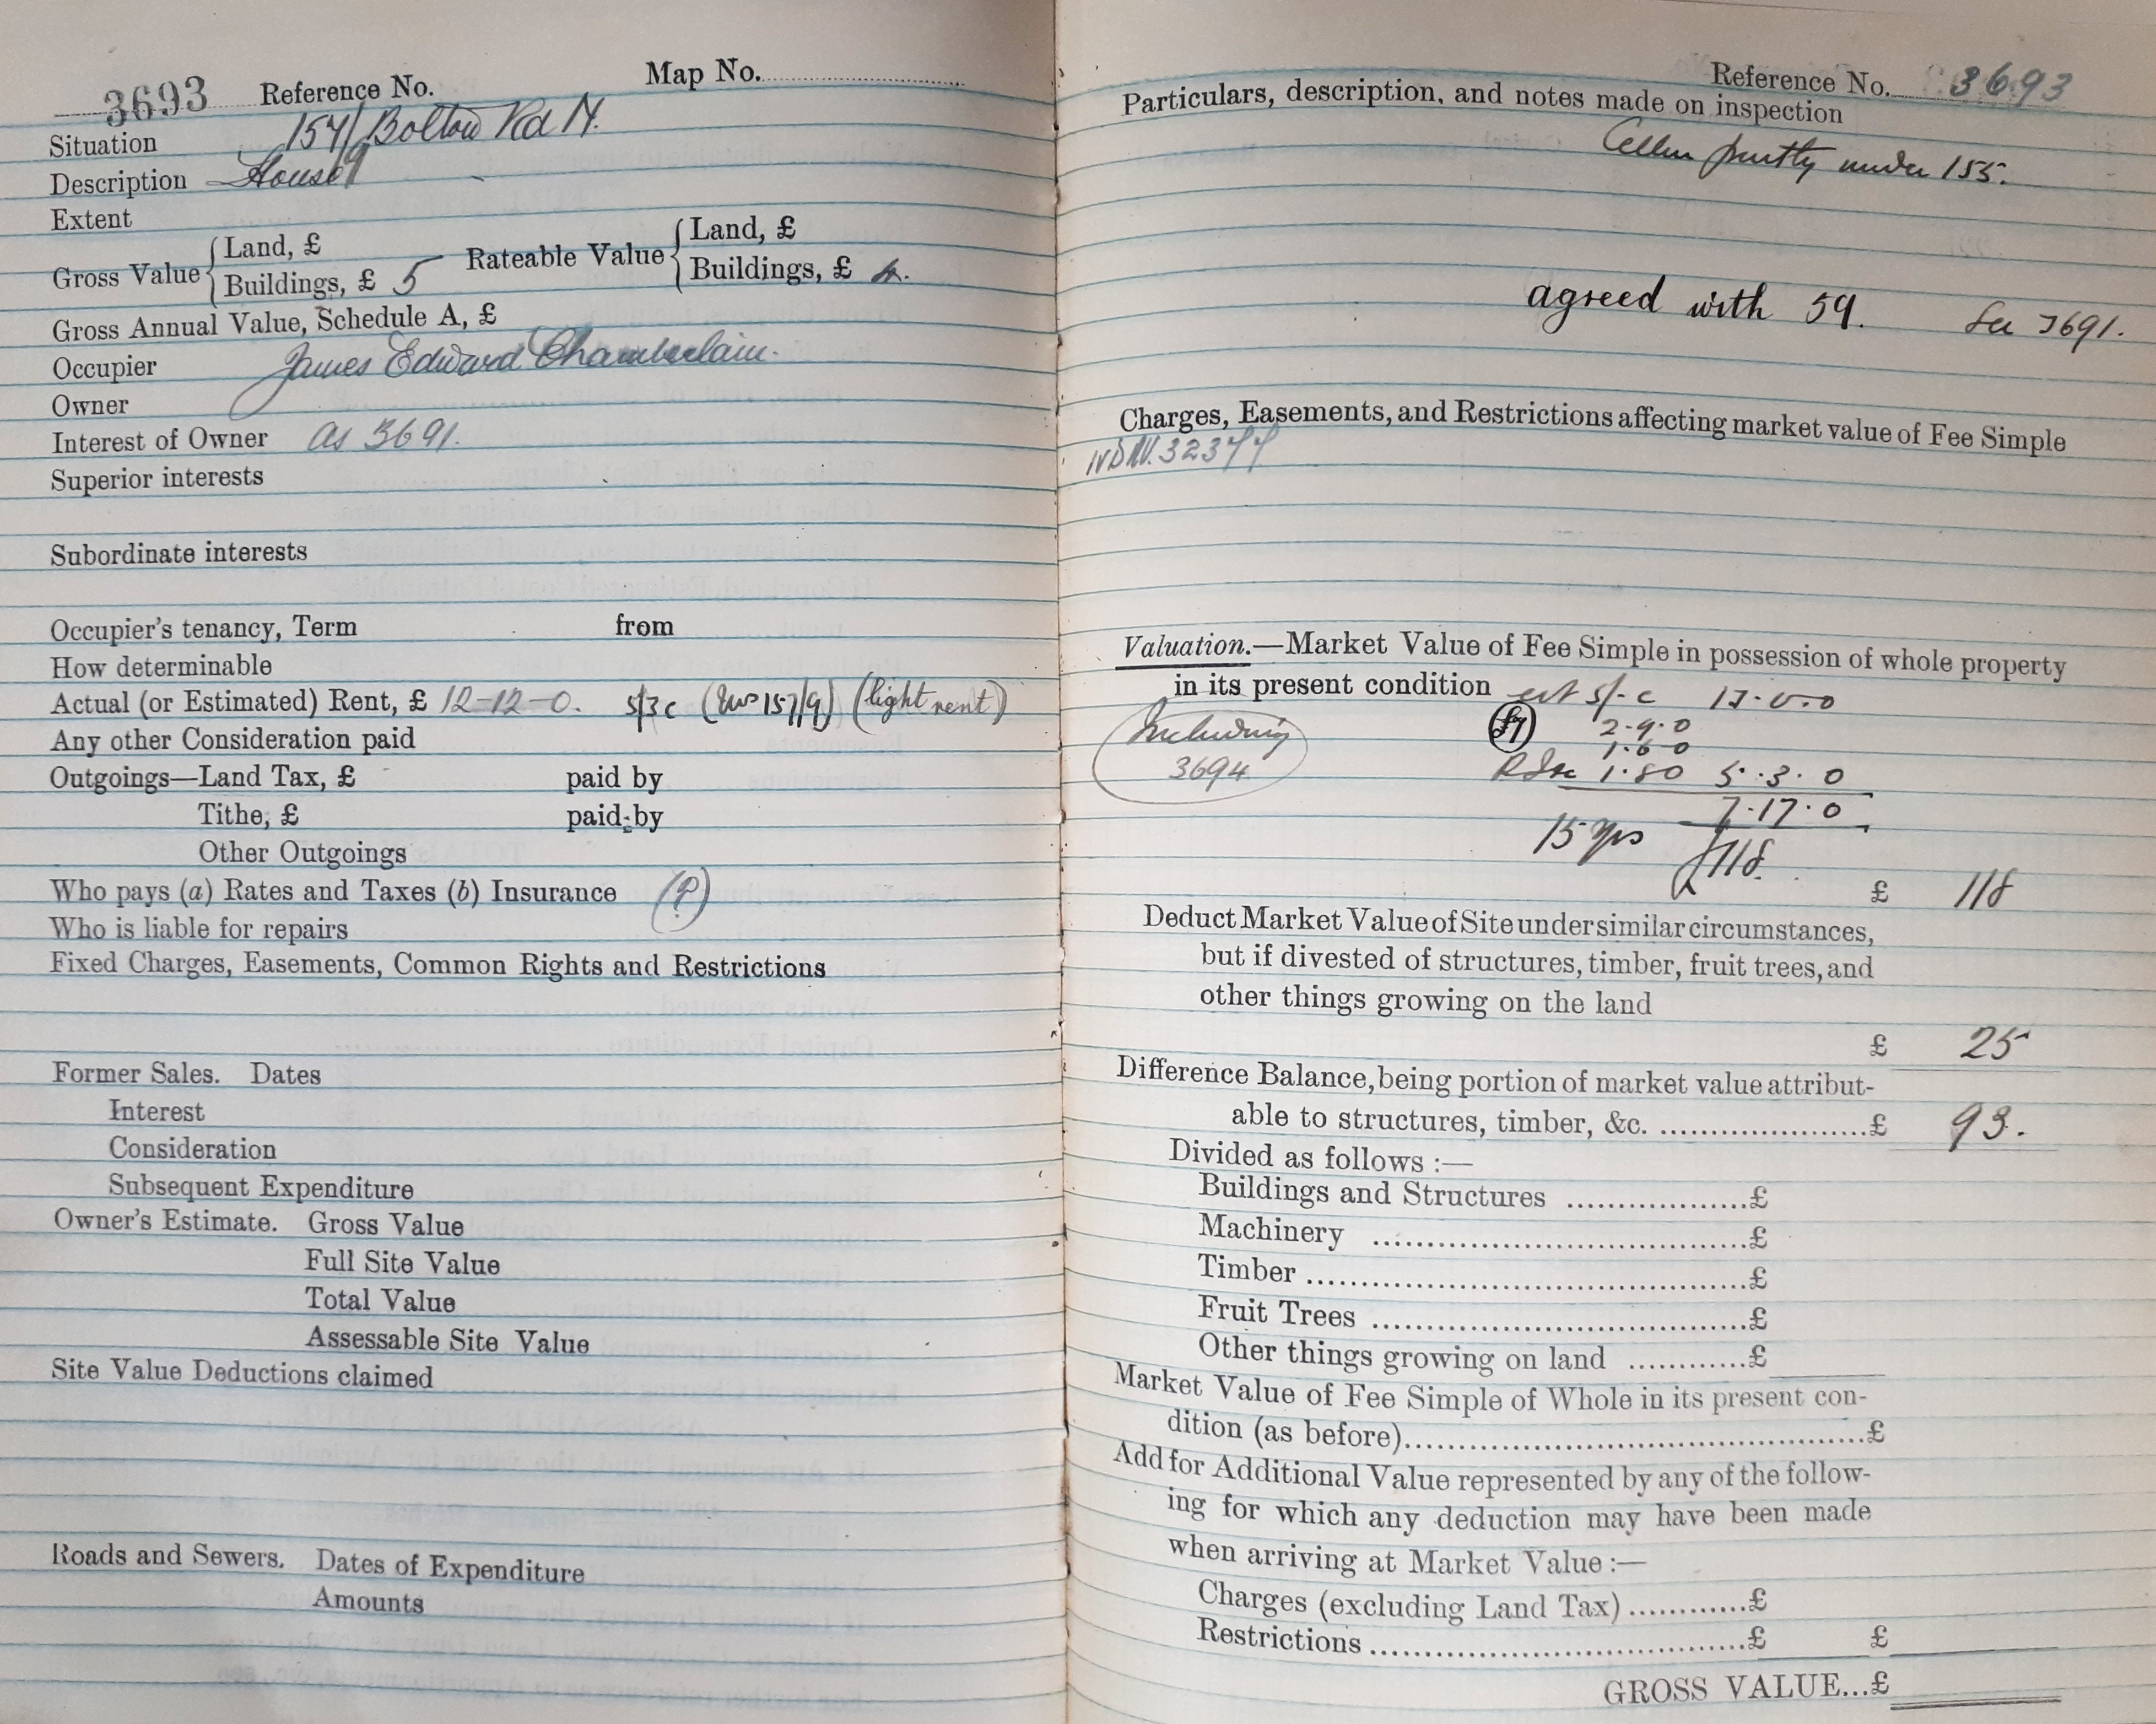 3693 Reference No. Map No.
Situation 157/ Bolton Rd N.
Description House 9
Extent
Gross Value { Land, £
Buildings, £ 5
Rateable Value { Land, £
Buildings, £ 4.
Gross Annual Value, Schedule A, £
Occupier James Edward Chamberlain.
Owner
Interest of Owner As 3691.
Superior interests
Subordinate interests
Occupier's tenancy, Term from
How determinable
Actual (or Estimated) Rent, £ 12-12-0. 5/3c 157/9) (light rent)
Any other Consideration paid
Outgoings—Land Tax, £ paid by
Tithe, £ paid by
Other Outgoings
Who pays (a) Rates and Taxes (b) Insurance (?)
Who is liable for repairs
Fixed Charges, Easements, Common Rights and Restrictions
Former Sales. Dates
Interest
Consideration
Subsequent Expenditure
Owner's Estimate. Gross Value
Full Site Value
Total Value
Assessable Site Value
Site Value Deductions claimed
Roads and Sewers. Dates of Expenditure
Amounts
Reference No. 3693
Particulars, description, and notes made on inspection
Cellar partly under 155.
agreed with 59. See 3691.
Charges, Easements, and Restrictions affecting market value of Fee Simple
Valuation.—Market Value of Fee Simple in possession of whole property
in its present condition est 5/- c 13-0-0
Including 3694
2.9.0
1.6.0
1.8.0 5.3.0
7.17.0
15 yrs £118.
£ 118
Deduct Market Value of Site under similar circumstances,
but if divested of structures, timber, fruit trees, and
other things growing on the land
£ 25
Difference Balance, being portion of market value attribut-
able to structures, timber, &c. ......................£ 93.
Divided as follows :—
Buildings and Structures ...................£
Machinery .......................................£
Timber .............................................£
Fruit Trees .......................................£
Other things growing on land ............£
Market Value of Fee Simple of Whole in its present con-
dition (as before)................................................£
Add for Additional Value represented by any of the follow-
ing for which any deduction may have been made
when arriving at Market Value :—
Charges (excluding Land Tax) ............£
Restrictions .......................................£ £
GROSS VALUE...£